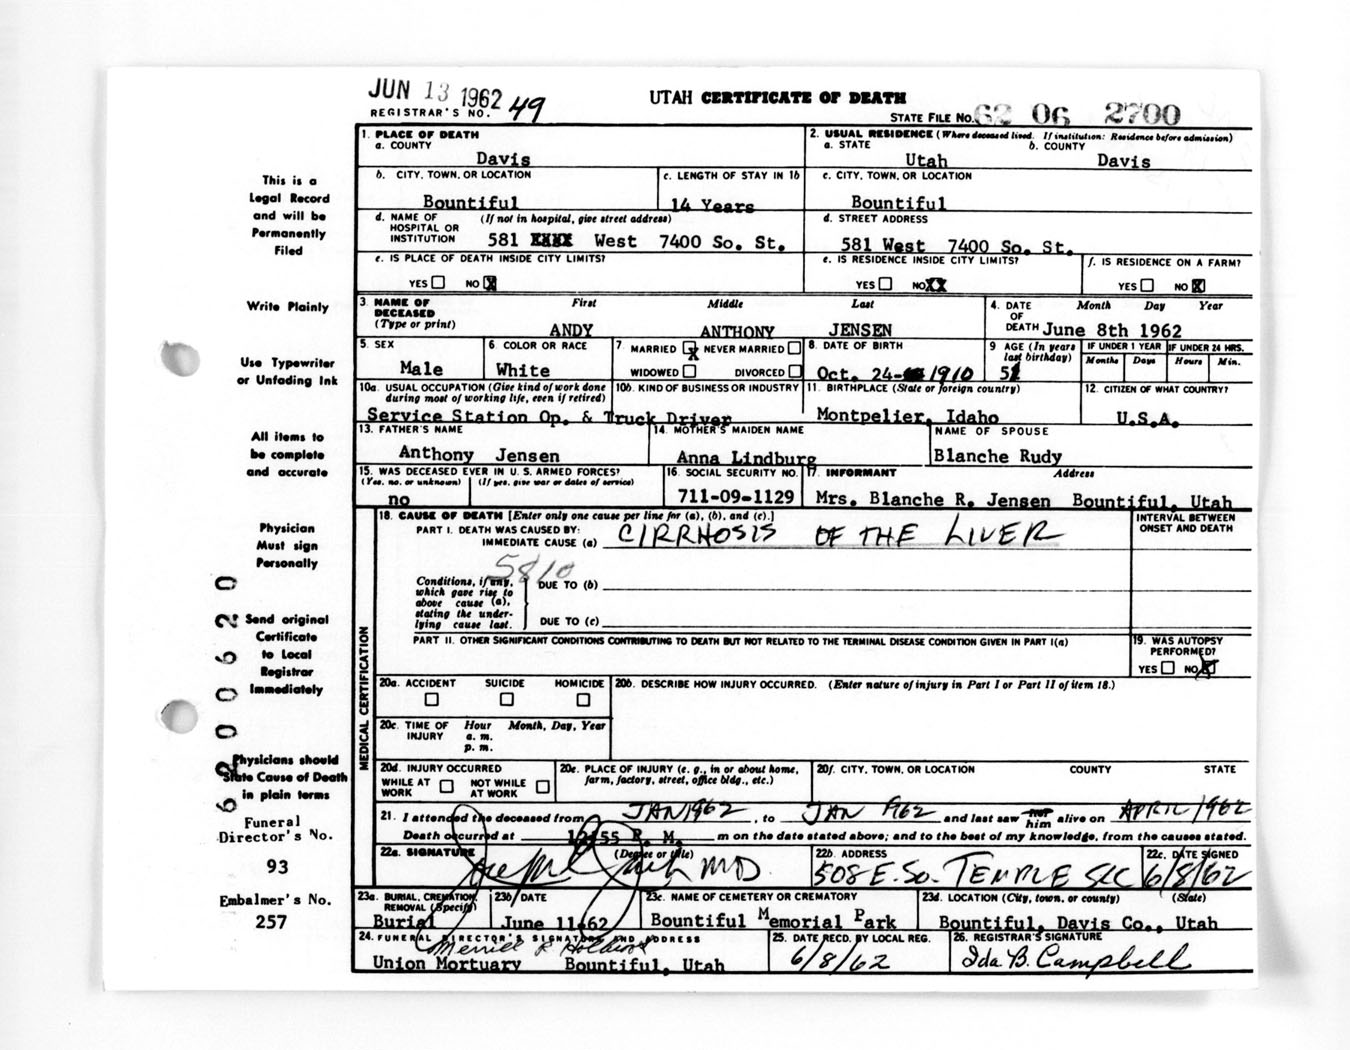 JUN 13 1962
REGISTRAR'S NO. 49
UTAH CERTIFICATE OF DEATH
STATE FILE NO. 62 06 2700
This is a
Legal Record
and will be
Permanently
Filed
Write Plainly
Use Typewriter
or Unfading Ink
All items to
be complete
and accurate
Physician
Must sign
Personally
Send original
Certificate
to Local
Registrar
Immediately
Physicians should
State Cause of Death
in plain terms
Funeral
Director's No.
93
Embalmer's No.
257
1. PLACE OF DEATH
a. COUNTY
Davis
2. USUAL RESIDENCE (Where deceased lived. If institution: Residence before admission)
a. STATE b. COUNTY
Utah Davis
b. CITY, TOWN, OR LOCATION
Bountiful
c. LENGTH OF STAY IN 1b
14 Years
c. CITY, TOWN, OR LOCATION
Bountiful
d. NAME OF (If not in hospital, give street address)
HOSPITAL OR
INSTITUTION 581 XXXX West 7400 So. St.
d. STREET ADDRESS
581 West 7400 So. St.
e. IS PLACE OF DEATH INSIDE CITY LIMITS?
YES NO X
e. IS RESIDENCE INSIDE CITY LIMITS?
YES NO XX
f. IS RESIDENCE ON A FARM?
YES NO X
3. NAME OF DECEASED (Type or print) First Middle Last
ANDY ANTHONY JENSEN
4. DATE OF DEATH Month Day Year
June 8th 1962
5. SEX
Male
6. COLOR OR RACE
White
7 MARRIED X NEVER MARRIED
WIDOWED DIVORCED
8. DATE OF BIRTH
Oct. 24- 1910
9 AGE (In years last birthday)
51
IF UNDER 1 YEAR IF UNDER 24 HRS.
Months Days Hours Min.
10a. USUAL OCCUPATION (Give kind of work done during most of working life, even if retired)
10b. KIND OF BUSINESS OR INDUSTRY
Service Station Op. & Truck Driver
11. BIRTHPLACE (State or foreign country)
Montpelier, Idaho
12. CITIZEN OF WHAT COUNTRY?
U.S.A.
13. FATHER'S NAME
Anthony Jensen
14. MOTHER'S MAIDEN NAME
Anna Lindburg
NAME OF SPOUSE
Blanche Rudy
15. WAS DECEASED EVER IN U. S. ARMED FORCES?
(Yes, no, or unknown) (If yes, give war or dates of service)
no
16. SOCIAL SECURITY NO.
711-09-1129
17. INFORMANT Address
Mrs. Blanche R. Jensen Bountiful, Utah
MEDICAL CERTIFICATION
18. CAUSE OF DEATH [Enter only one cause per line for (a), (b), and (c).]
PART I. DEATH WAS CAUSED BY:
IMMEDIATE CAUSE (a) CIRRHOSIS OF THE LIVER
INTERVAL BETWEEN
ONSET AND DEATH
5810
Conditions, if any,
which gave rise to
above cause (a),
stating the under-
lying cause last.
DUE TO (b)
DUE TO (c)
PART II. OTHER SIGNIFICANT CONDITIONS CONTRIBUTING TO DEATH BUT NOT RELATED TO THE TERMINAL DISEASE CONDITION GIVEN IN PART I(a)
19. WAS AUTOPSY
PERFORMED?
YES NO X
20a. ACCIDENT SUICIDE HOMICIDE
20b. DESCRIBE HOW INJURY OCCURRED. (Enter nature of injury in Part I or Part II of item 18.)
20c. TIME OF INJURY Hour Month, Day, Year
a. m.
p. m.
20d. INJURY OCCURRED
WHILE AT WORK NOT WHILE AT WORK
20e. PLACE OF INJURY (e. g., in or about home, farm, factory, street, office bldg., etc.)
20f. CITY, TOWN, OR LOCATION COUNTY STATE
21. I attended the deceased from JAN 1962, to JAN 1962 and last saw him alive on APRIL 1962
Death occurred at 12:55 P. M. m on the date stated above; and to the best of my knowledge, from the causes stated.
22a. SIGNATURE (Degree or title)
MD.
22b. ADDRESS
508 E. So. TEMPLE SLC
22c. DATE SIGNED
6/8/62
23a. BURIAL, CREMATION, REMOVAL (Specify)
Burial
23b. DATE
June 11-62
23c. NAME OF CEMETERY OR CREMATORY
Bountiful Memorial Park
23d. LOCATION (City, town, or county) (State)
Bountiful, Davis Co., Utah
24. FUNERAL DIRECTOR'S SIGNATURE AND ADDRESS
Merrill R Holbrook
Union Mortuary Bountiful, Utah
25. DATE RECD. BY LOCAL REG.
6/8/62
26. REGISTRAR'S SIGNATURE
Ida B. Campbell
620090620